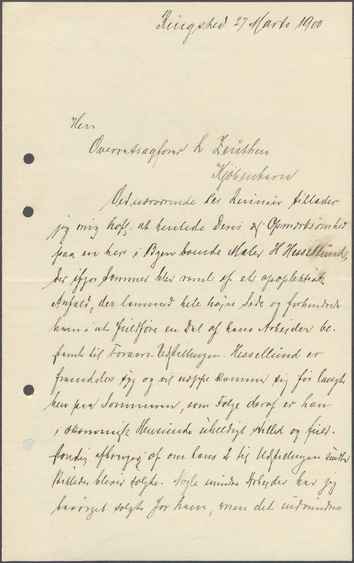 Ringsted 27 Marts 1900
Herr
Overretssagfører L Zeuthen
Kjøbenhavn
Ved nærværende tillader
jeg mig at henlede Deres Opmærksomhed
paa en her i Byen boende Maler H Hessellund,
der ifjor Sommer blev ramt af et apoplektisk
Anfald, der lammed hele højre Side og forhindrede
ham i at fuldføre en Del af hans Arbejder be-
stemt til Foraars Udstillingen. Hessellund er
fremdeles syg og vil næppe komme sig før langt
hen paa Sommeren, som Følge deraf er han
i økonomisk Henseende uheldigt stillet og fuld-
stændig afhængig af om hans 2 til Udstillingen sendte
Billeder bliver solgte. Nogle mindre Arbejder har jeg
besørget solgte for ham, men det indvundne